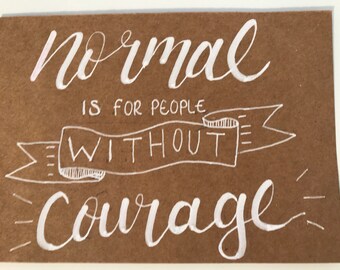 Normal
IS FOR PEOPLE
WITHOUT
Courage